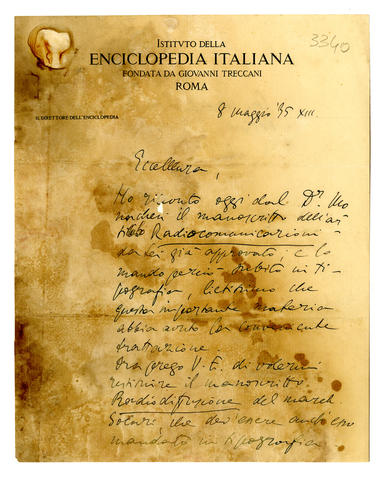 ISTITVTO DELLA
ENCICLOPEDIA ITALIANA
FONDATA DA GIOVANNI TRECCANI
ROMA
3340
IL DIRETTORE DELL'ENCICLOPEDIA
8 maggio '35 XIII.
Eccellenza,
Ho ricevuto oggi dal Dr. Mo
norchio il manoscritto dell'ar-
ticolo Radiocomunicazioni
da Lei già approvato, e lo
mando perciò subito in ti-
pografia, lietissimo che
questa importante materia
abbia avuto la conveniente
trattazione.
Ora prego V. E. di volermi
restituire il manoscritto
Radiodiffusione del march.
Solari, che dev'essere anch'esso
mandato in tipografia